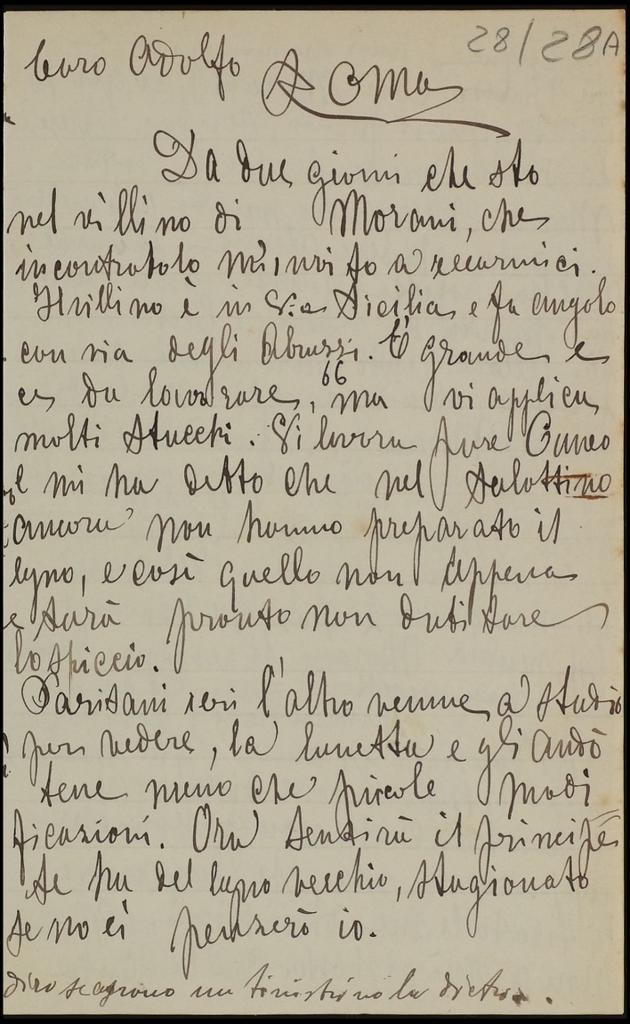 28/28A
Caro Adolfo Roma
Da due giorni che sto
nel villino di Morani, che
incontratolo m'invito a recarmici.
Il villino è in Via Sicilia e fa angolo
con via degli Abruzzi. È grande e
c'è da lavorare, ma vi applica
66
molti stucchi. Vi lavora pure Cuneo
e mi ha detto che nel salottino
ancora non hanno preparato il
legno, e così quello non appena
sarà pronto non dubitare
lo spiccio.
Parisani ieri l'altro venne a studio
per vedere, la lunetta e gli andò
bene meno che piccole modi
ficazioni. Ora sentirà il principe
se ha del legno vecchio, stagionato
se no ci penserò io.
un la dietro.